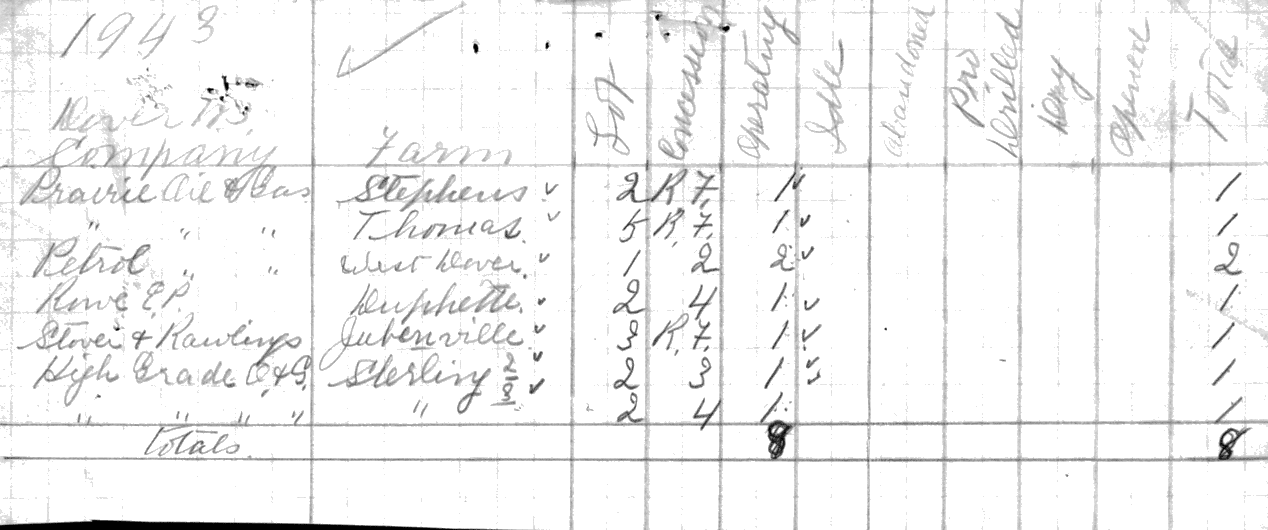 1943 ✓
Dover Tp.
Company Farm Lot Concession Operating Idle Abandoned Drilled Dry Opened Total
Prairie Oil & Gas Stephens ✓ 2 R. 7. 1 ✓ 1
" " " Thomas. ✓ 5 R. 7. 1 ✓ 1
Petrol " " West Dover. ✓ 1 2 2 ✓ 2
Rowe E.P. Duphette. ✓ 2 4 1 ✓ 1
Stover & Rawlings Jubenville ✓ 3 R. 7. 1 ✓ 1
High Grade O. & G. Sterling 2/3 ✓ 2 3 1 ✓ 1
" " " " " 2 4 1 1
Totals. 8 8